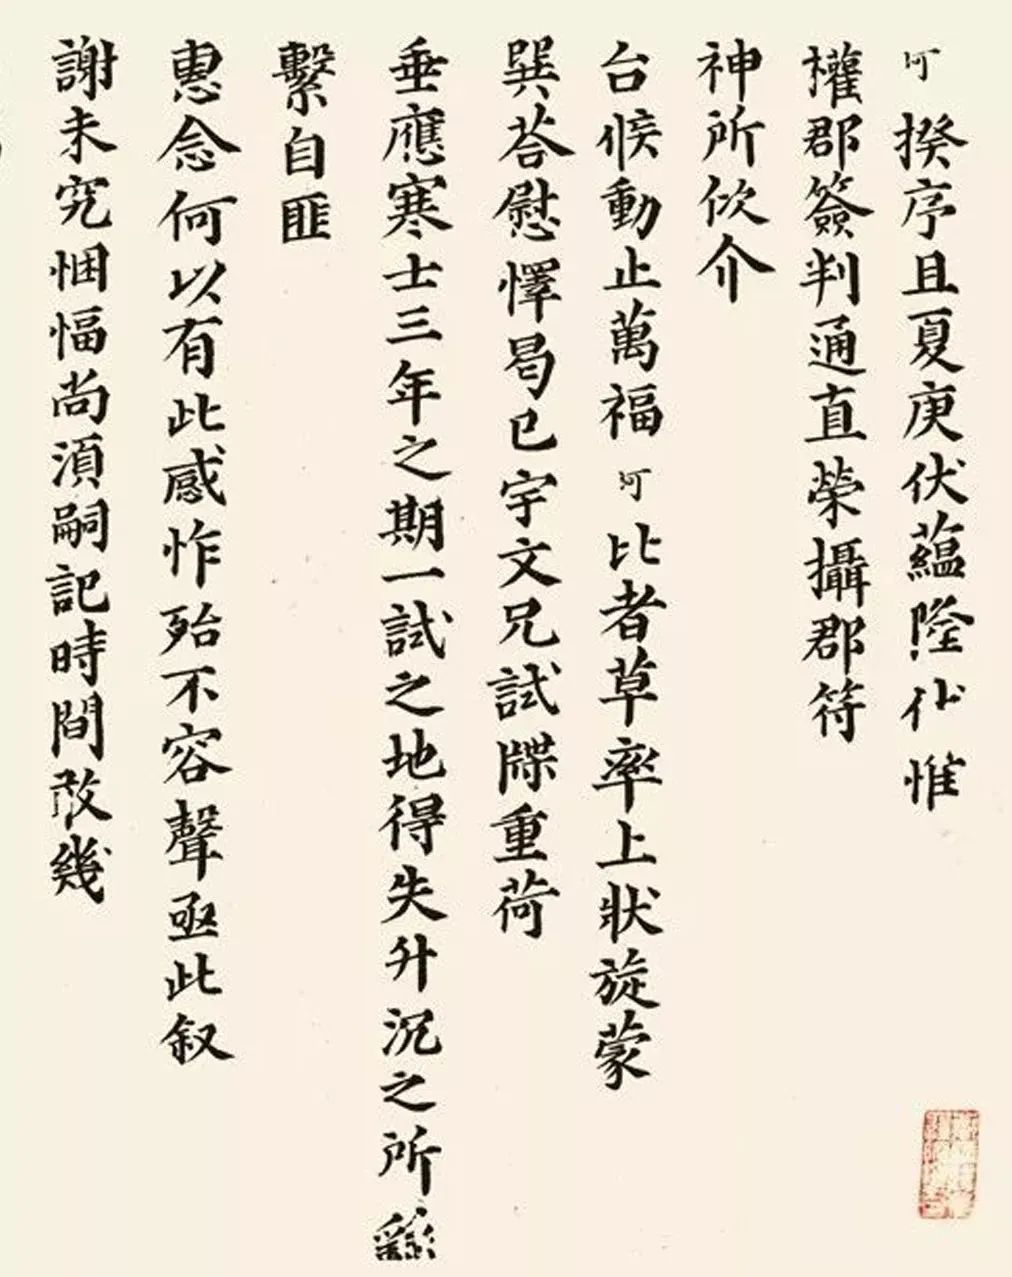 可揆序且夏庚伏蘊隆仆惟
權郡簽判通直榮攝郡符
神所佽介
台候動止萬福可比者草率上狀旋蒙
巽荅慰懌曷已宇文兄試牒重荷
垂應寒士三年之期一試之地得失升沉之所繇
繫自匪
惠念何以有此感怍殆不容聲亟此叙
謝未究悃愊尚須嗣記時間敢幾